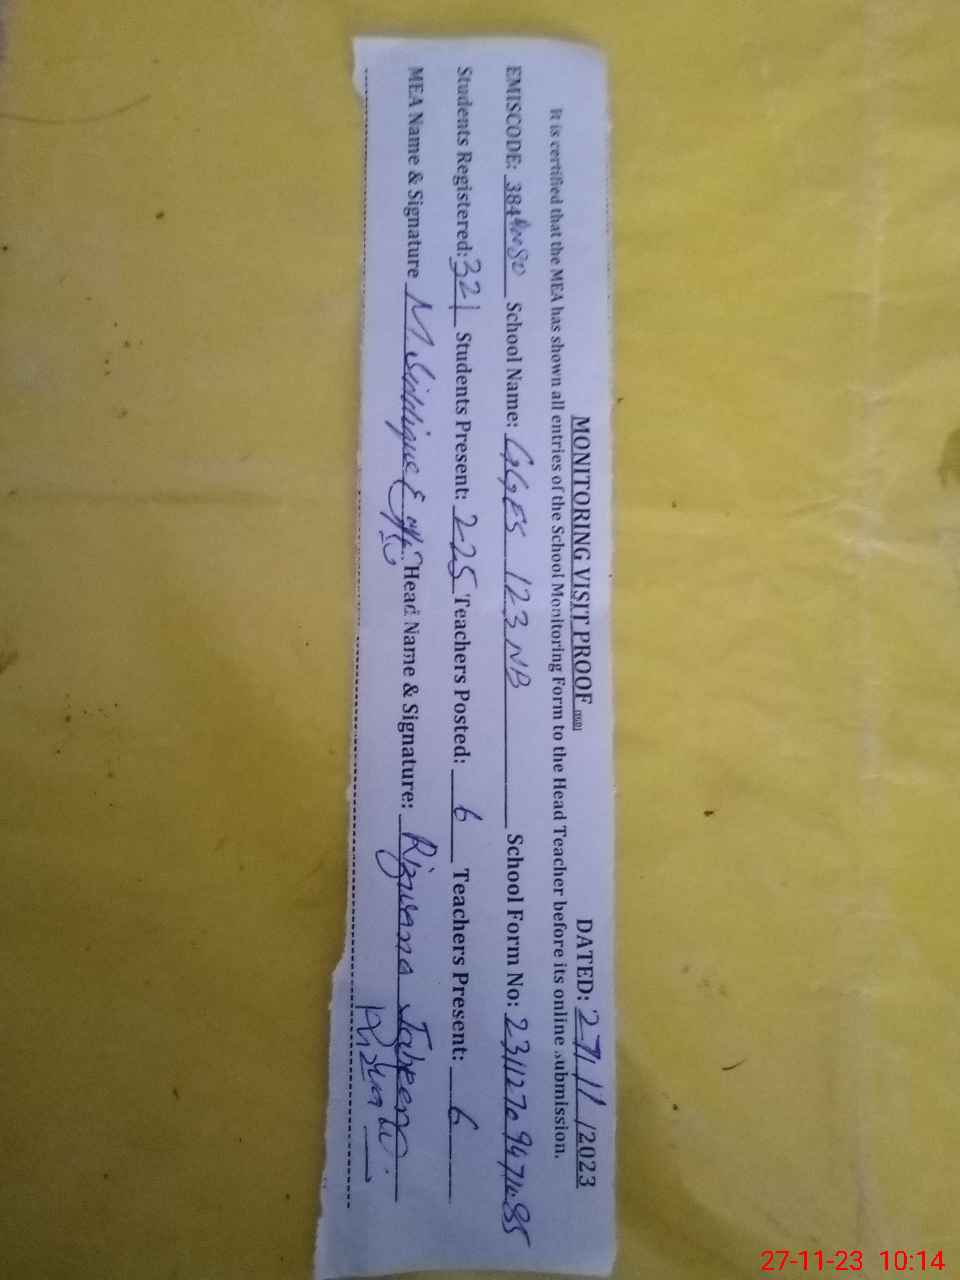 MONITORING VISIT PROOF DATED: 27/11/2023
It is certified that the MEA has shown all entries of the School Monitoring Form to the Head Teacher before its online submission.
EMISCODE: School Name: GGES 123 NB School Form No:
Students Registered: 321 Students Present: 225 Teachers Posted: 6 Teachers Present: 6
MEA Name & Signature M. Siddique Head Name & Signature: Rizwana Jabeen
27-11-23 10:14